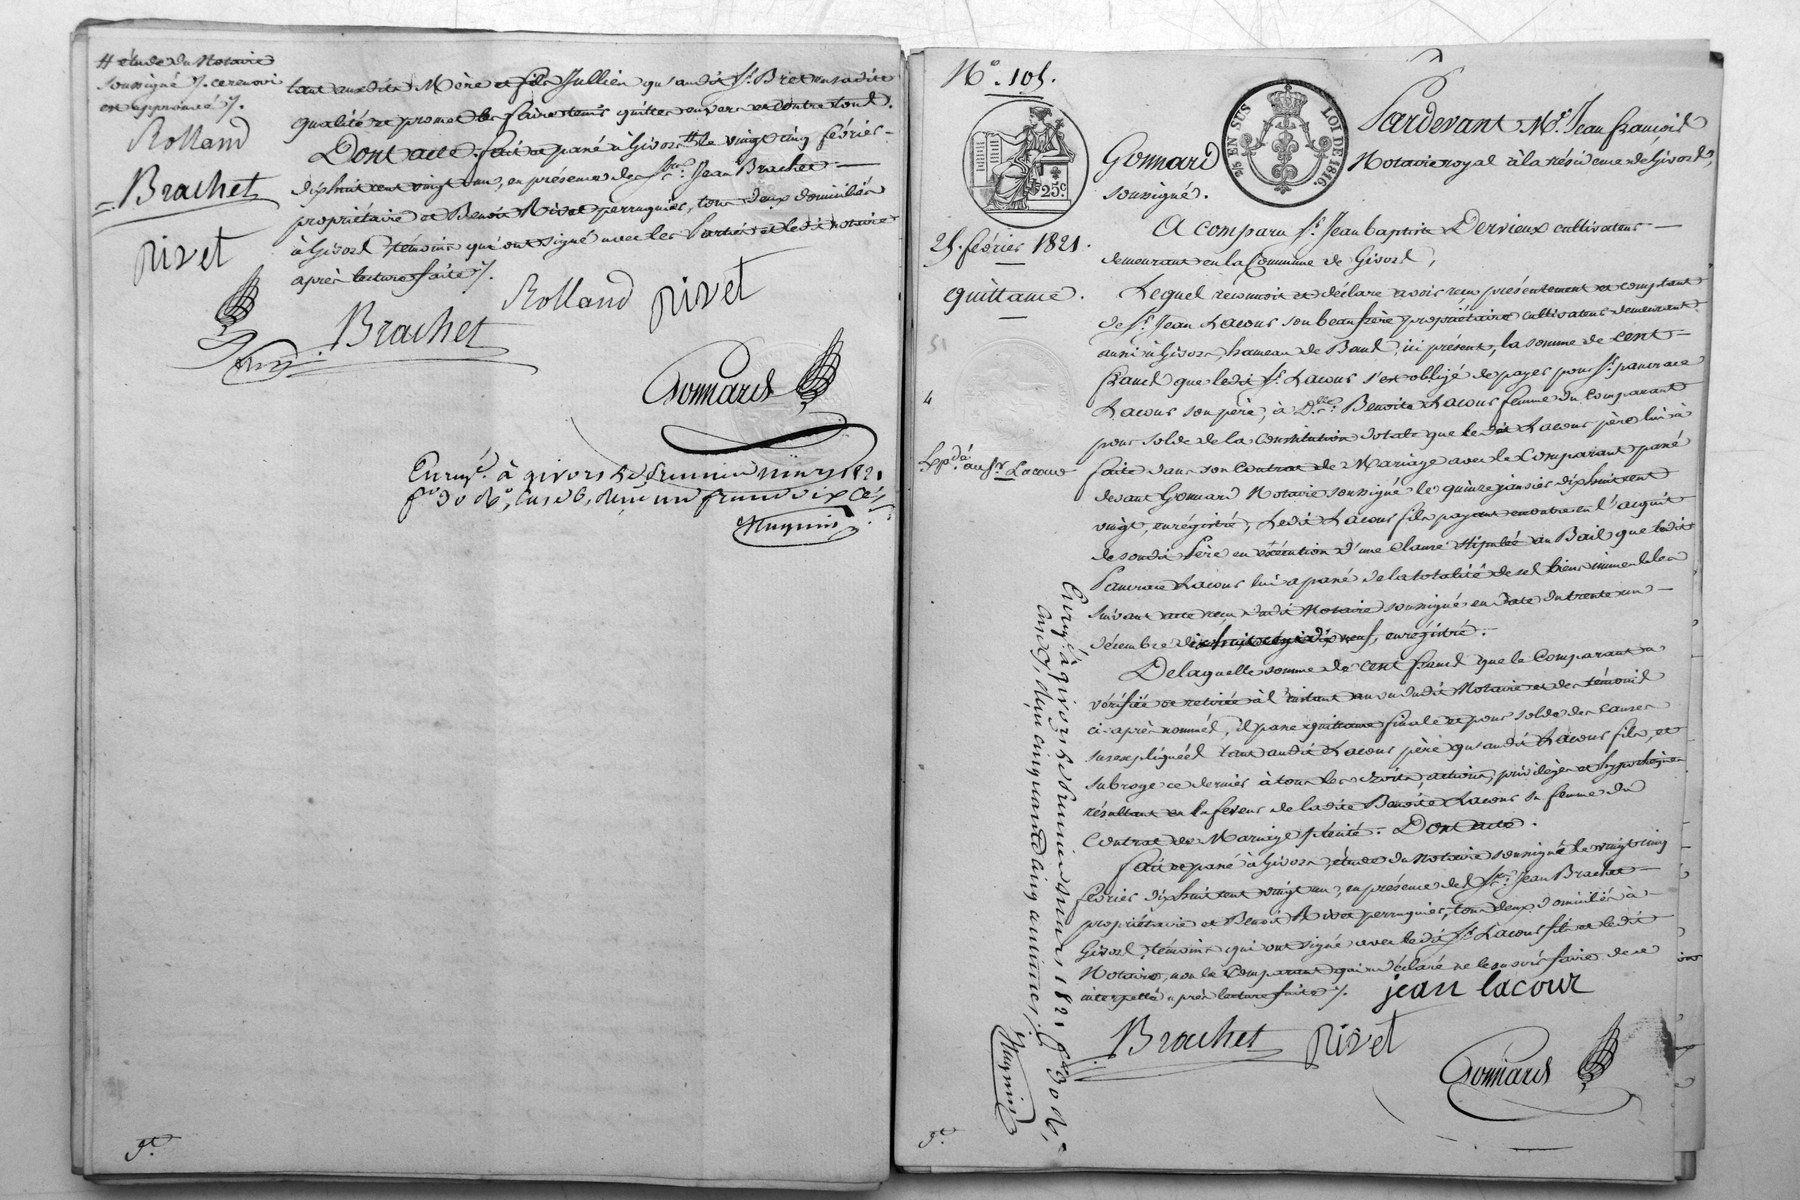 # étude du Notaire
soussigné ./. ce renvoi
est approuvé ./.
Rolland
Brachet
Rivet
tant auxdits Mère et fils Jullien qu'audit Sr. Bret en sadite
qualité et promet les faire tenir quittes envers et contre tous.
Dont acte. fait et passé à Givors # le vingt cinq février
dix huit cent vingt un, en présence de Srs. Jean Brachet
propriétaire et Benoit Rivet perruquier, tous deux domiciliés
à Givors témoins qui ont signé avec les Parties et ledit notaire
après lecture faite ./.
Rolland Rivet
Brachet
Gonnard
Enregé. à givors le premier mars 1821
fo. 30 Ro. Case 6, reçu un franc dix ces.
Huguin
gt.
No. 105.
25 EN SUS
LOI DE 1816.
25c.
25. février 1821.
quittance.
51
4
Expé. au Sr. Lacour
Pardevant Me. Jean françois
Gonnard Notaire royal à la résidence de Givors,
soussigné.
A comparu Sr. Jean baptiste Dervieux cultivateur
demeurant en la Commune de Givors,
Lequel reconnoit et déclare avoir reçu présentement et comptant
de Sr. Jean Lacour son beau frère propriétaire cultivateur demeurant
aussi à Givors, hameau de Bans, ici présent, la somme de cent
francs que ledit Sr. Lacour s'est obligé de payer pour Sr. pancrace
Lacour son père, à Dlle. Benoite Lacour femme du Comparant
pour solde de la constitution dotale que ledit Lacour père lui a
faite dans son Contrat de Mariage avec le Comparant passé
devant Gonnard Notaire soussigné le quinze janvier dix huit cent
vingt, enregistré, Ledit Lacour fils payant en outre en l'acquit
de sondit Père en exécution d'une clause stipulée au Bail que ledit
Pancrace Lacour lui a passé de la totalité de ses biens immeubles
suivant acte reçu dudit Notaire soussigné en date du trente un
décembre dix huit cent dix neuf, enregistré.
De laquelle somme de cent francs que le Comparant a
vérifiée et retirée à l'instant au vu dudit Notaire et des témoins
ci-après nommés, il passe quittance finale et pour solde des causes
susexpliquées tant audit Lacour père qu'audit Lacour fils, et
subroge ce dernier à tous les droits, actions, privilèges et hypothèques
résultant en la faveur de ladite Benoite Lacour sa femme du
Contrat de Mariage précité. Dont acte.
fait et passé à Givors, étude du Notaire soussigné le vingt cinq
février dix huit cent vingt un, en présence des Srs. Jean Brachet
propriétaire et Benoit Rivet perruquier, tous deux domiciliés à
Givors, témoins qui ont signé avec ledit Sr. Lacour fils et ledit
Notaire, non le Comparant qui a déclaré ne le savoir faire de ce
interpellé après lecture faite ./. jean lacour
Brachet Rivet
Gonnard
Enregé. à givors le premier mars 1821 fo. 30 Ro.
Case 7, reçu cinquante cinq centimes
Huguin
gt.